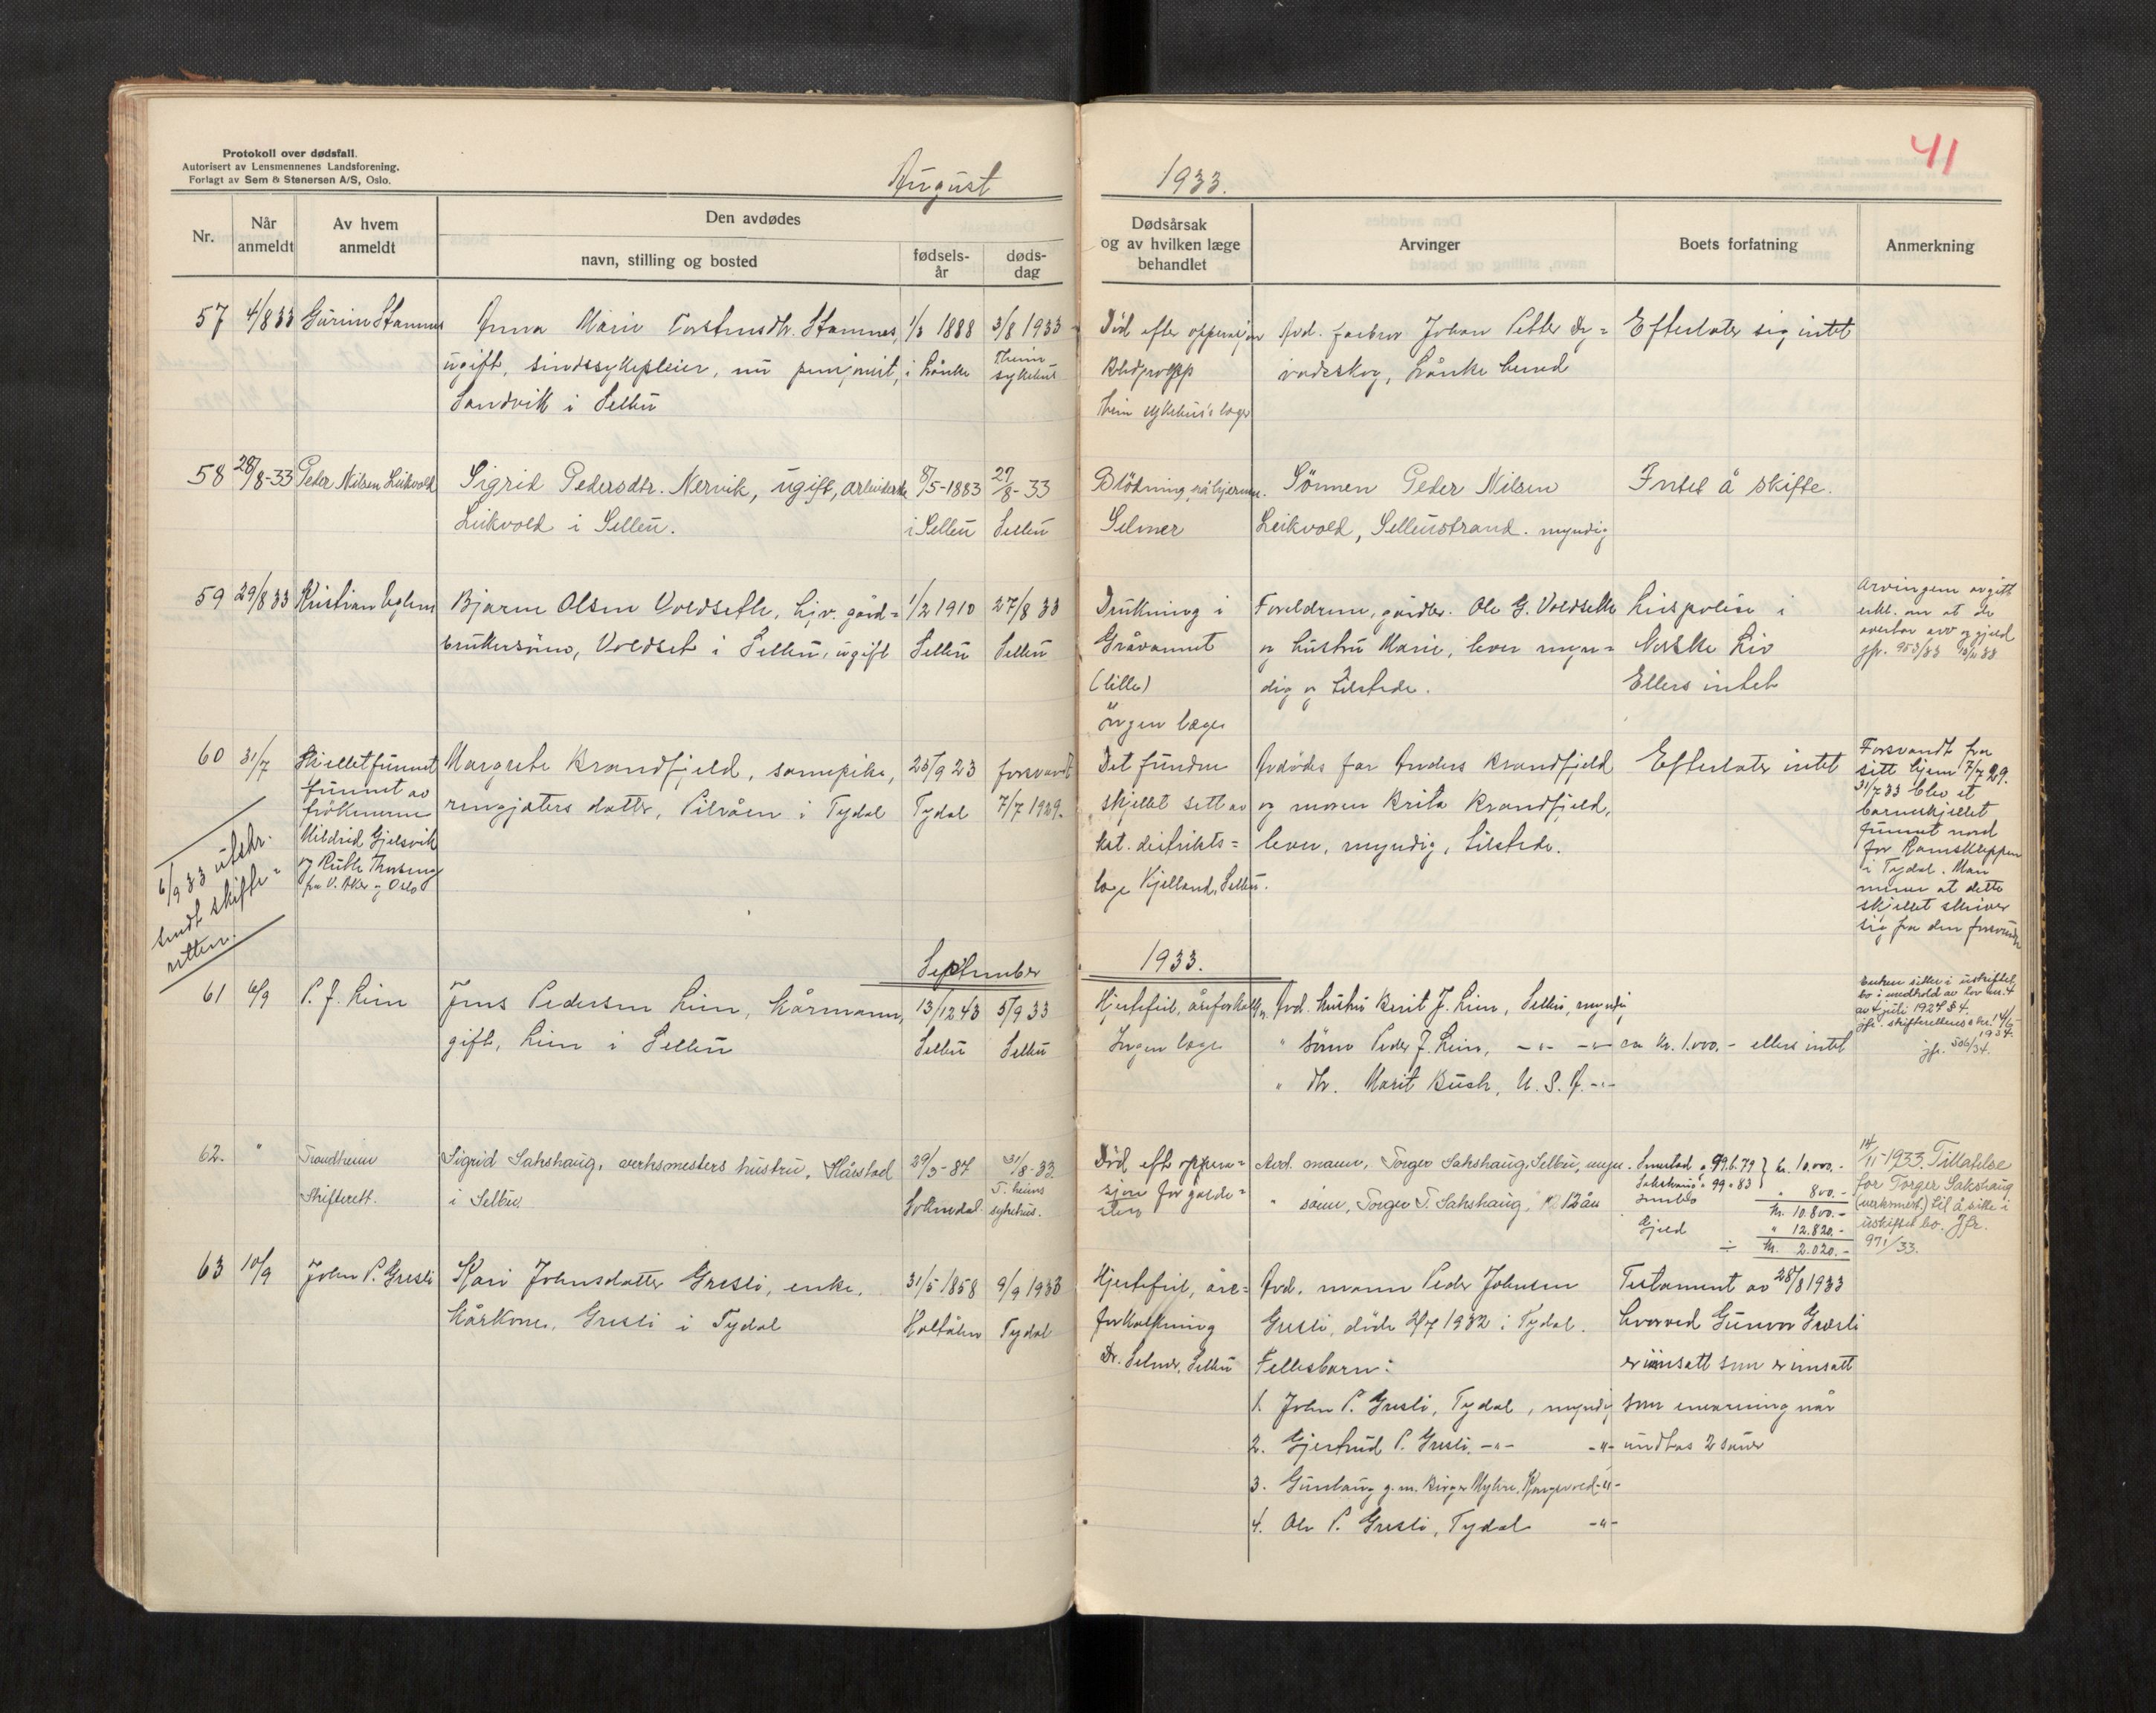 Protokoll over dødsfall.
Autorisert av Lensmennenes Landsforening.
Forlagt av Sem & Stenersen A/S, Oslo.
August
1933.
41
Nr.
Når anmeldt
Av hvem anmeldt
Den avdødes
navn, stilling og bosted
fødselsår
dødsdag
Dødsårsak og av hvilken læge behandlet
Arvinger
Boets forfatning
Anmerkning
57 4/8 33 Gurine Stamnes
Anna Marie Torstensdtr. Stamnes,
ugift, sindssykepleier, nu pensjonist,
Sandvik i Selbu
1/3 1888
i Lånke
3/8 1933
Theim
sykehus
Død efter opperasjon
Blodpropp
Theim sykehus's læger
Avd. farbror Johan Petter
Lånke herred
Efterlater sig intet
58 28/8-33 Peder Nilsen Leikvold
Sigrid Pedersdtr. Nervik, ugift, arbeiderske
Leikvold i Selbu.
8/5-1883
i Selbu
27/8-33
Selbu
Blödning på hjernen.
Selmer
Sönnen Peder Nilsen
Leikvold, Selbustrand. myndig
Intet å skifte.
59 29/8 33 Kristian Uglem
Bjarne Olsen Voldseth, hjv. gård=
brukersönn, Voldset i Selbu, ugift
1/2 1910
Selbu
27/8 33
Selbu
Drukning i
Gråvannet
(lille)
Ingen læge
Foreldrene, gårdbr. Ole G. Voldseth
og hustru Marie, lever myn=
dig og tilstede.
Livspolise i
Norske Liv
Ellers intet
Arvingene avgitt
erkl. om at de
overtar arv og gjeld
jfr. 953/33 10/11 33
60 31/7 Skjellet funnet
funnet av
frøknerne
Mildrid Gjelsvik
og Ruth Thorsing
fra V. Aker og Oslo
6/9 33 utskr.
sendt skifte=
retten.
Margrete Brandfjeld, samepike,
reingjæters datter, Stilråen i Tydal
25/9 23
Tydal
forsvandt
7/7 1929.
Det fundne
skjellet sett av
kst. distrikts=
læge Kjelland, Selbu.
Avdödes far Anders Brandfjeld
og moren Brita Brandfjeld,
lever, myndig, tilstede.
Efterlater intet
Forsvandt fra
sitt hjem 7/7 29.
31/7 33 blev et
barneskjellet
funnet nord
for Ramskleppen
i Tydal. Man
mener at dette
skjellet skriver
sig fra den forsvundne
September
1933.
61 6/9 P. J. Lien
Jens Pedersen Lien, kårmann,
gift, Lien i Selbu
13/12 43
Selbu
5/9 33
Selbu
Hjertefeil, åreforkalkn.
Ingen læge
Avd. hustru Berit J. Lien, Selbu, myndig
" sönn Peder J. Lien, -"- -"-
" dtr. Marit Busch, U.S.A. -"-
ca kr. 1.000.- ellers intet
Enken sitter i uskiftet
bo i medhold av lov nr. 4
av 4 juli 1927 § 4.
jfr. skifterettens skr. 14/6
1934.
jfr. 506/34.
62. " Trondheim
Skifterett.
Sigrid Sakshaug, verksmesters hustru, Hårstad
i Selbu.
29/3-87
Soknedal
31/8-33.
T.heims
sykehus.
Död eft. oppera=
sjon for galde=
sten
Avd. mann, Torger Sakshaug, Selbu, myn.
" sönn, Torger T. Sakshaug, 12 år
g. 99 b. 79 } kr. 10.000.-
Sakshaug " 99 " 83
Innbo " 800.-
kr. 10.800.-
Gjeld " 12.820.-
÷ kr. 2.020.-
14/11-1933. Tillatelse
for Torger Sakshaug
(verksmest.) til å sitte i
uskiftet bo. Jfr.
971/33.
63 10/9 John P. Gresli
Kari Johnsdatter Gresli, enke.
Kårkone, Gresli i Tydal
31/5 1858
Haltdalen
9/9 1933
Tydal
Hjertefeil, åre=
forkalkning
Dr. Selmer, Selbu
Avd. mann Peder Johnsen
Gresli, döde 2/7 1932 i Tydal.
Fellesbarn:
1. John P. Gresli, Tydal, myndig
2. Gjertrud P. Gresli -"- -"-
3. Gunlaug g.m. Birger Myhre, Kongsvold -"-
4. Ole P. Gresli, Tydal -"-
Testament av 28/8 1933
hvorved Gunvor Græsli
er innsatt som er innsatt
som enearving når
undtas 2 sauer